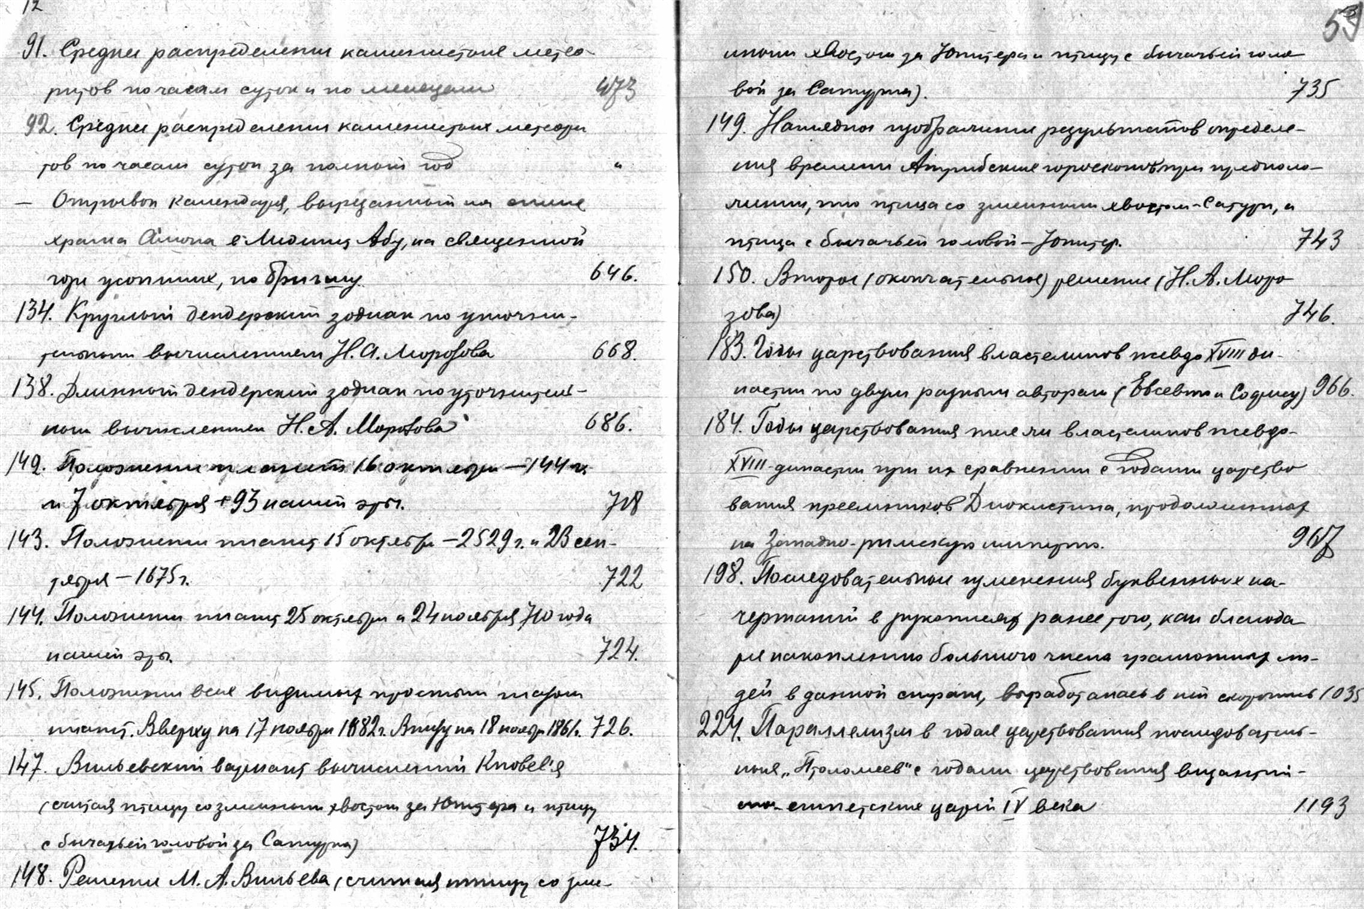 12
91. Среднее распределение каменистых метео-
ритов по часам суток и по месяцам 473
92. Среднее распределение каменистых метеори
тов по часам суток за полный год "
— Отрывок календаря, вырезанный на стене
храма Амона в Мединет Абу, на священной
горе усопших, по Бругшу. 646.
134. Круглый дендерский зодиак по уточни-
тельным вычислениям Н.А. Морозова 668.
138. Длинный дендерский зодиак по уточнитель-
ным вычислениям Н.А. Морозова 686.
142. Положение планет 16 октября —144 г.
и 7 октября +93 нашей эры. 718
143. Положение планет 15 октября —2529 г. и 23 сен-
тября —1675 г. 722
144. Положение планет 25 октября и 24 ноября 710 года
нашей эры. 724.
145. Положение всех видимых простым глазом
планет. Вверху на 17 ноября 1682 г. Внизу на 18 ноября 1861 г. 726.
147. Вильевский вариант вычислений Knobel'я
(считая птицу со змеиным хвостом за Юпитера и птицу
с бычачьей головой за Сатурна) 734.
148. Решение М.А. Вильева (считая птицу со зме-
59
иным хвостом за Юпитера и птицу с бычачьей голо
вой за Сатурна). 735
149. Наглядное изображение результатов определе-
ния времени Атрибских гороскопов при предполо-
жении, что птица со змеиным хвостом—Сатурн, а
птица с бычачьей головой—Юпитер. 743
150. Второе (окончательное) решение (Н.А. Моро
зова) 746.
183. Годы царствования властелинов псевдо XVIII ди-
настии по двум разным авторам (Евсевию и Софису) 966.
184. Годы царствования тех же властелинов псевдо-
XVIII-династии при их сравнении с годами царство
вания преемников Диоклетиана, продолженных
на Западно-римскую империю. 967
198. Последовательные изменения буквенных на-
чертаний в рукописях ранее того, как благода
ря накоплению большого числа грамотных лю-
дей в данной стране, выработалась в ней скоропись 1035
224. Параллелизм в годах царствования последователь-
ных „Птоломеев" с годами царствования византий-
ско-египетских царей IV века 1193